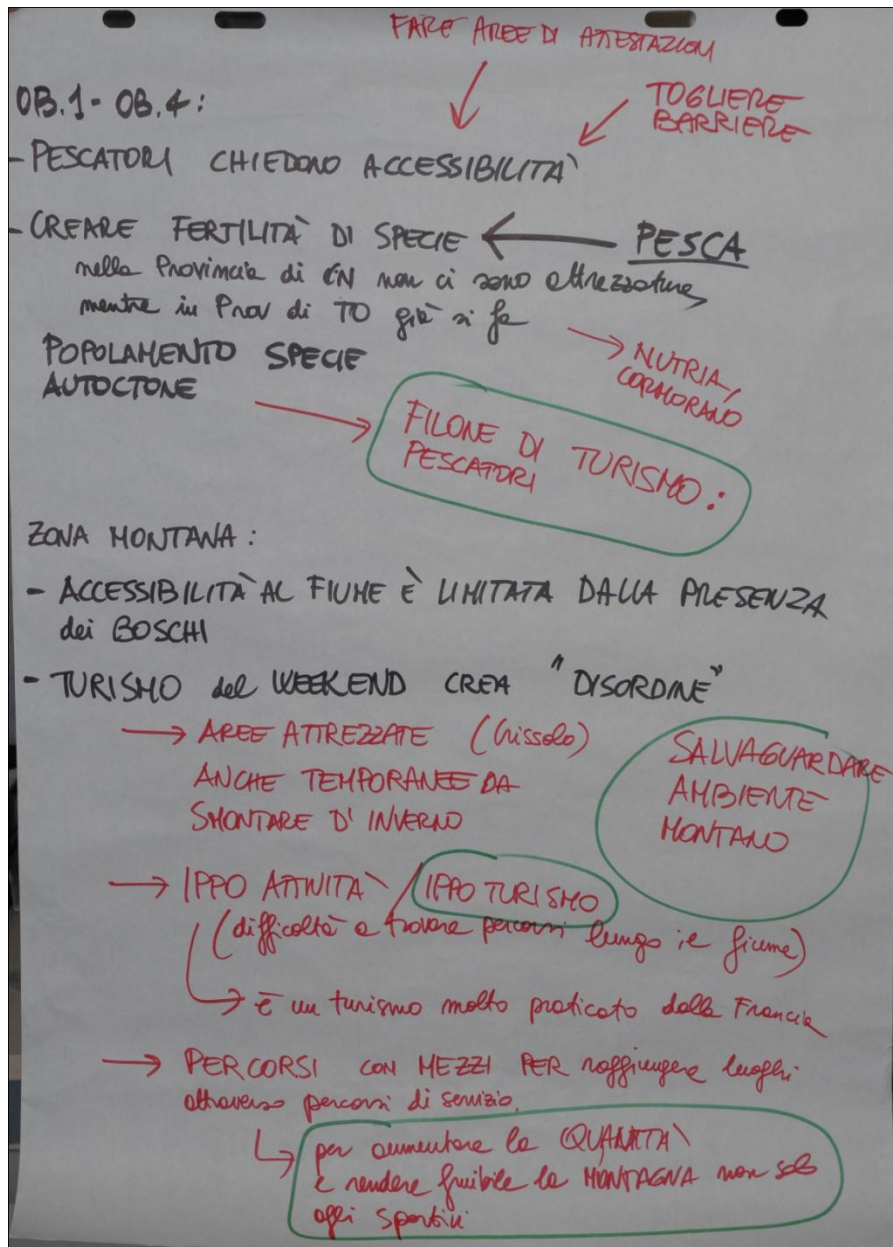 FARE AREE DI ATTESTAZIONI
TOGLIERE
BARRIERE
OB.1 - OB.4:
- PESCATORI CHIEDONO ACCESSIBILITÀ
- CREARE FERTILITÀ DI SPECIE ← PESCA
nella Provincia di CN non ci sono attrezzature
mentre in Prov di TO già si fa
→ NUTRIA,
CORMORANO
POPOLAMENTO SPECIE
AUTOCTONE
→ FILONE DI TURISMO:
PESCATORI
ZONA MONTANA:
- ACCESSIBILITÀ AL FIUME È LIMITATA DALLA PRESENZA
dei BOSCHI
- TURISMO del WEEKEND CREA "DISORDINE"
→ AREE ATTREZZATE (Crissolo)
ANCHE TEMPORANEE DA
SMONTARE D'INVERNO
SALVAGUARDARE
AMBIENTE
MONTANO
→ IPPO ATTIVITÀ / IPPO TURISMO
(difficoltà a trovare percorsi lungo il fiume)
→ è un turismo molto praticato dalla Francia
→ PERCORSI CON MEZZI PER raggiungere luoghi
attraverso percorsi di servizio.
→ per aumentare la QUANTITÀ
e rendere fruibile la MONTAGNA non solo
agli sportivi